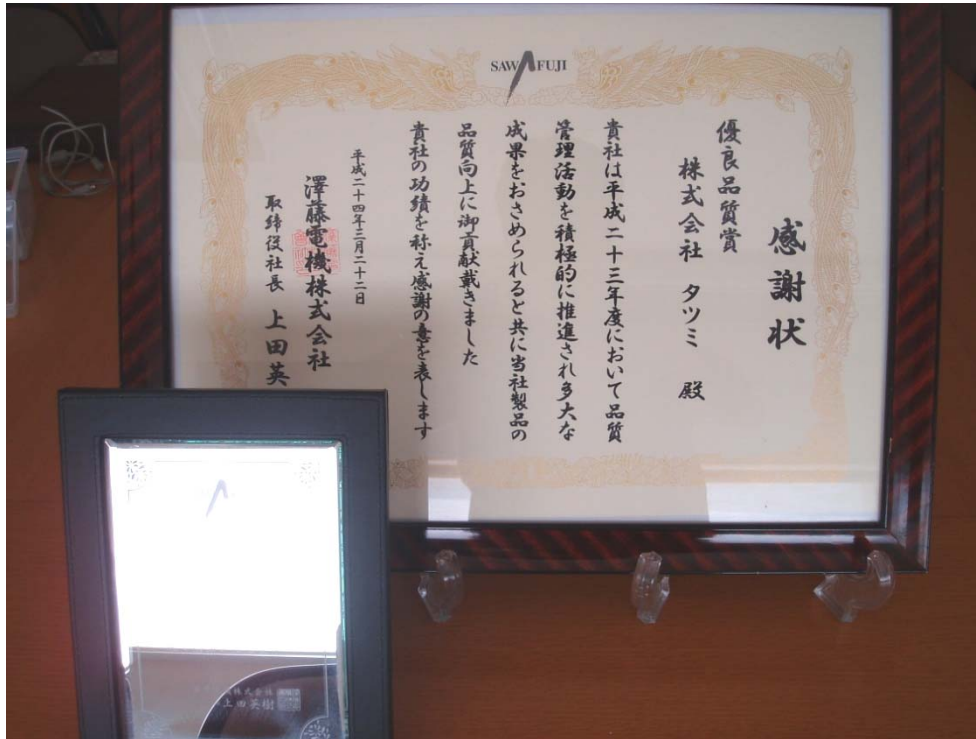 SAWAFUJI
感謝状
優良品質賞
株式会社 タツミ 殿
貴社は平成二十三年度において品質
管理活動を積極的に推進され多大な
成果をおさめられると共に当社製品の
品質向上に御貢献戴きました
貴社の功績を称え感謝の意を表します
平成二十四年三月二十二日
澤藤電機株式会社
取締役社長 上田英
株式会社
上田英樹